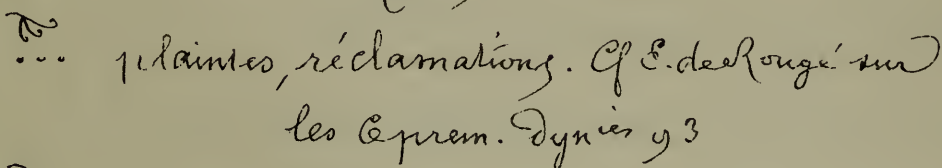 plaintes, réclamations. Cf E. de Rougé sur
les 6 prem. Dynies 93